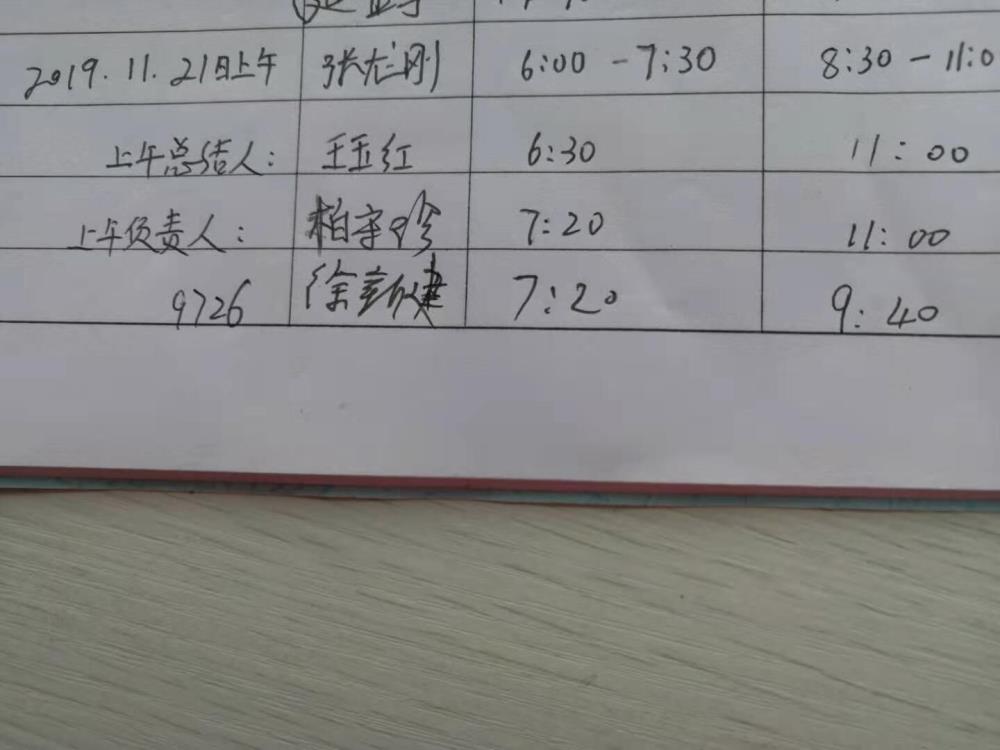 2019.11.21日上午 张龙刚 6:00-7:30 8:30-11:0
上午总结人: 王玉红 6:30 11:00
上午负责人: 柏守珍 7:20 11:00
9726 徐新健 7:20 9:40